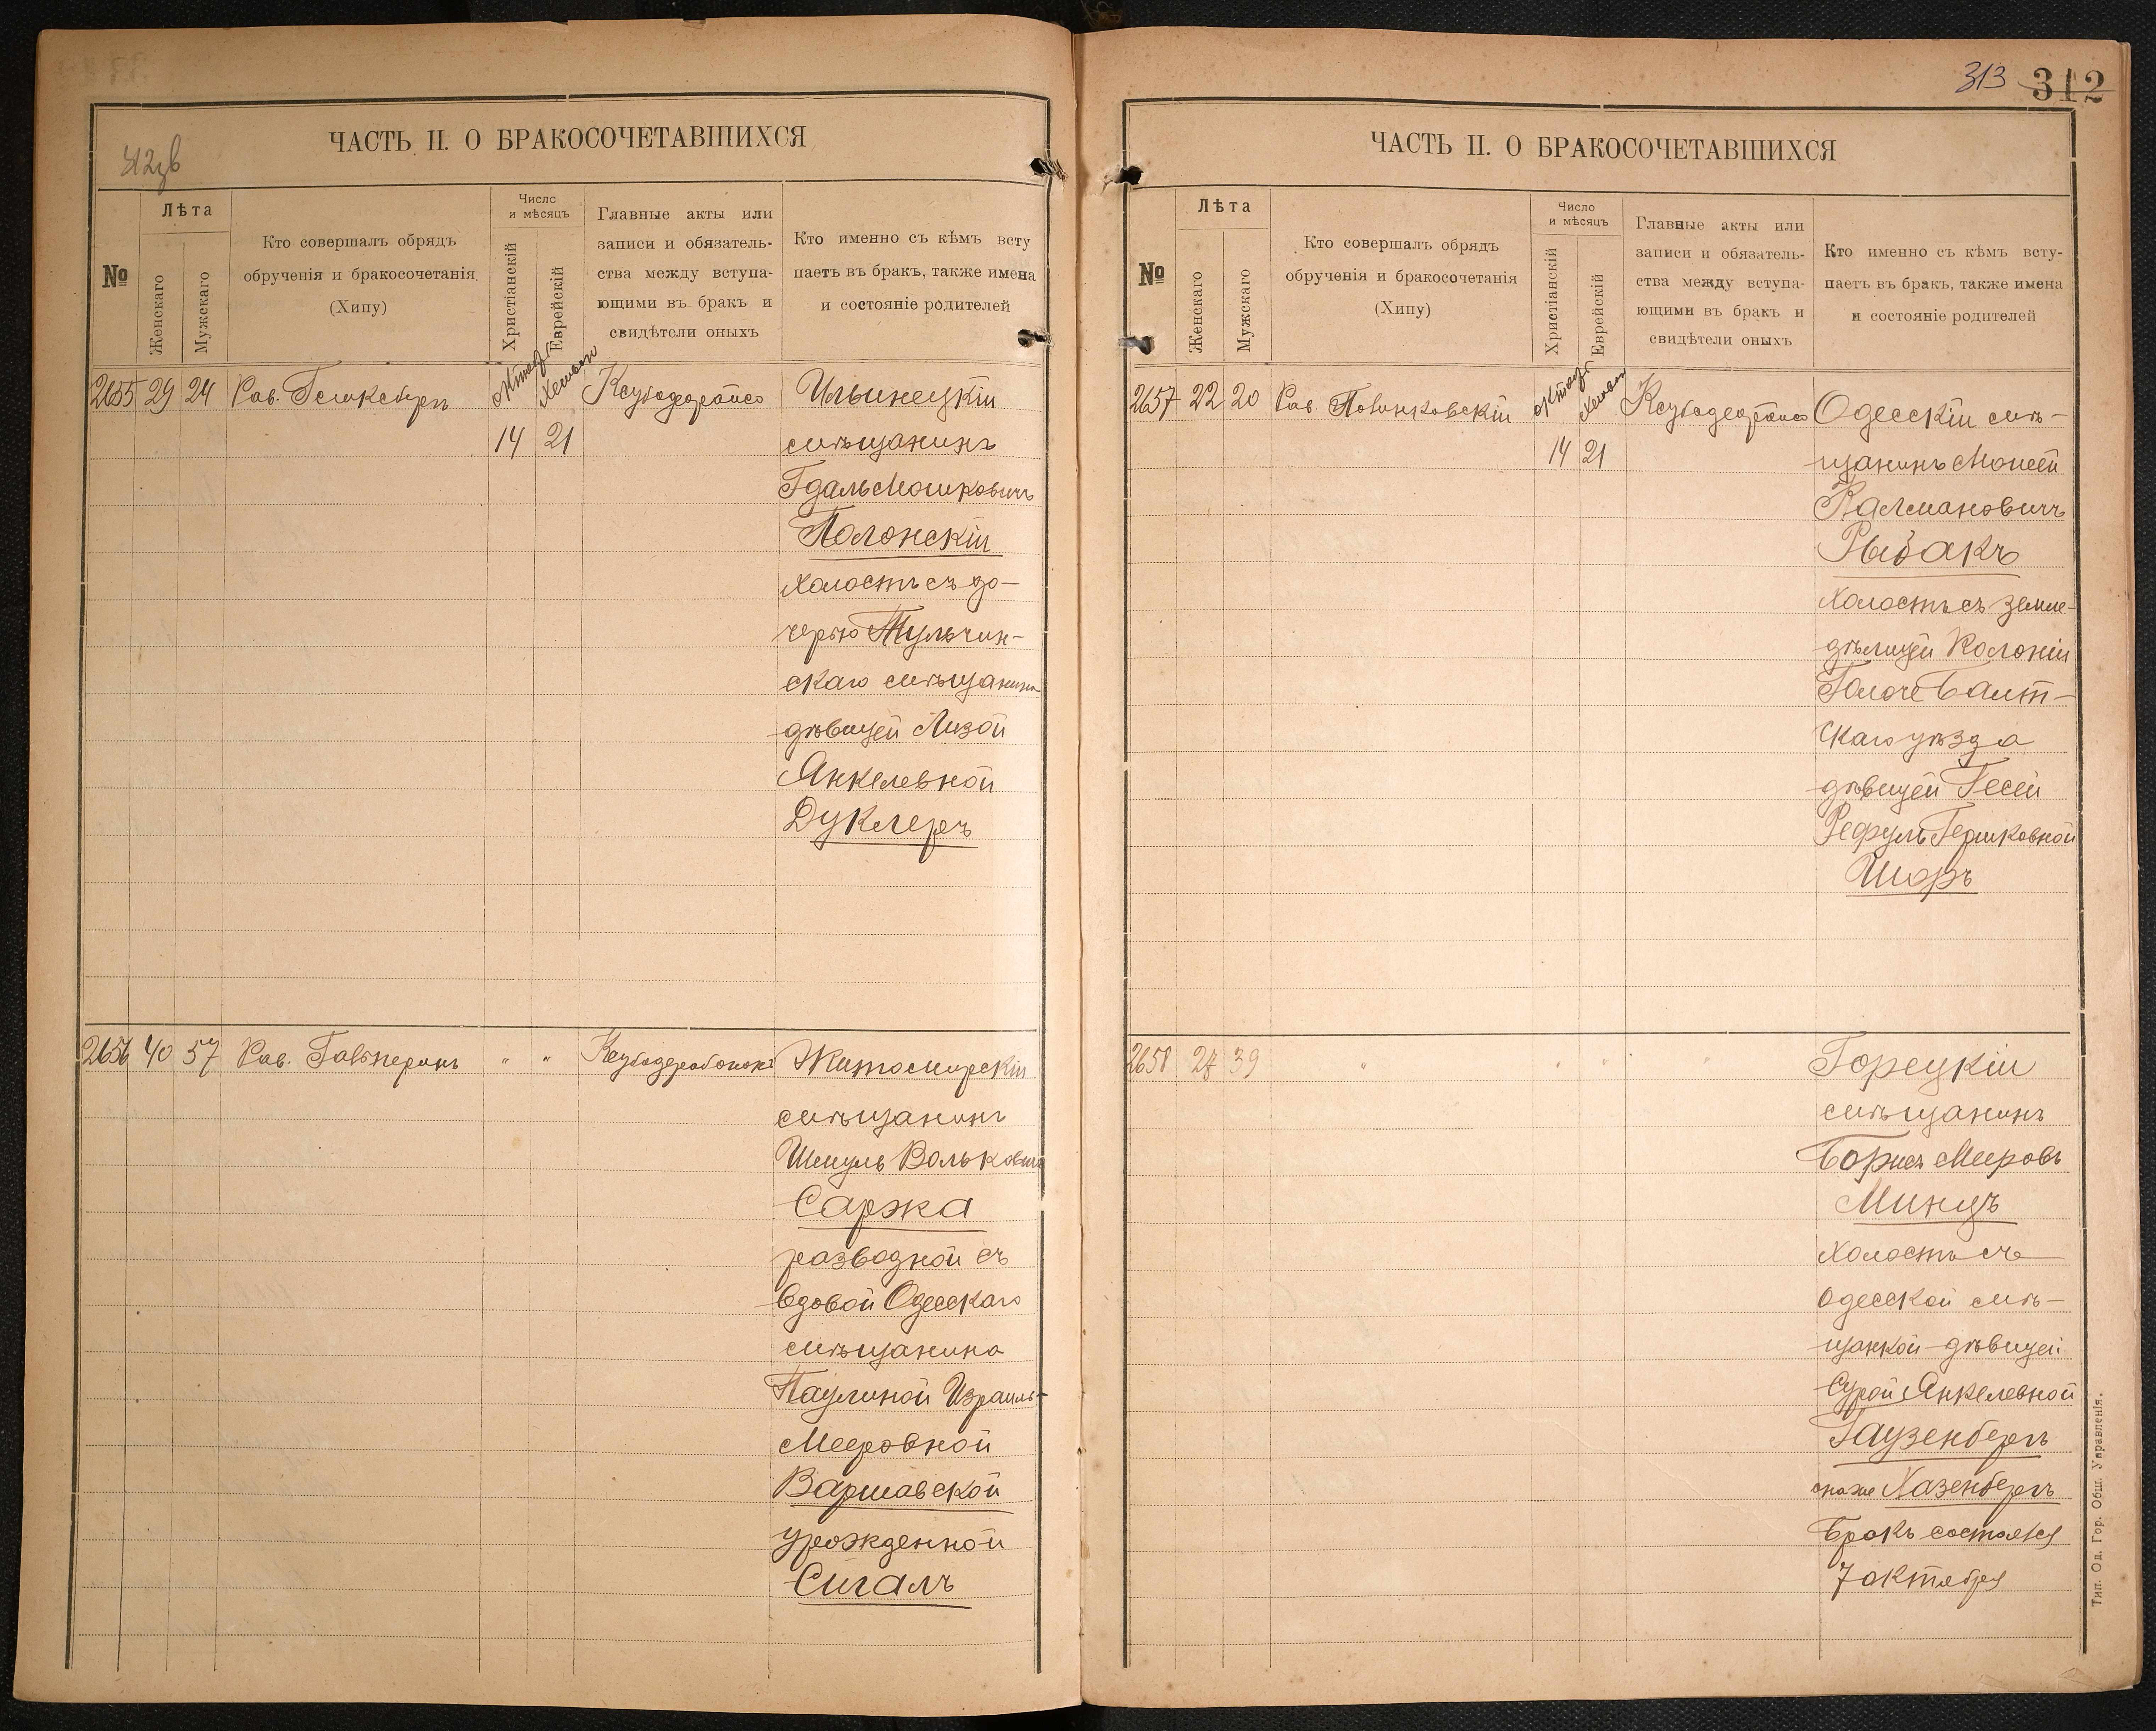 ЧАСТЬ II. О БРАКОСОЧЕТАВШИХСЯ
№
Лѣта
Женскаго
Мужскаго
Кто совершалъ обрядъ
обрученія и бракосочетанія
(Хипу)
Число
и мѣсяцъ
Христіанскій
Еврейскій
Главные акты или
записи и обязатель-
ства между вступа-
ющими въ бракъ и
свидѣтели оныхъ
Кто именно съ кѣмъ всту
паетъ въ бракъ, также имена
и состояніе родителей
2655 29 24 Рав.
14 21
Ильинецкій
мѣщанинъ
Гдаль Мошковичъ
Полонскій
холостъ съ до-
черью Тульчин-
скаго мѣщанина
дѣвицей Лизой
Янкелевной
Дуклеръ
2656 40 57 Рав. Гальперинъ " "
Житомирскій
мѣщанинъ
Шмуль Волькович
Саржа
разводной съ
вдовой Одесскаго
мѣщанина
Паулиной Израиль-
Мееровной
Варшавской
урожденной
Сигалъ
313 312
ЧАСТЬ II. О БРАКОСОЧЕТАВШИХСЯ
№
Лѣта
Женскаго
Мужскаго
Кто совершалъ обрядъ
обрученія и бракосочетанія
(Хипу)
Число
и мѣсяцъ
Христіанскій
Еврейскій
Главные акты или
записи и обязатель-
ства между вступа-
ющими въ бракъ и
свидѣтели оныхъ
Кто именно съ кѣмъ всту-
паетъ въ бракъ, также имена
и состояніе родителей
2657 22 20 Рав.
14 21
Одесскій мѣ-
щанинъ Моисей
Калмановичъ
Рыбакъ
холостъ съ земле-
дѣлицей Колоніи
Балт-
скаго уѣзда
дѣвицей Гесей
Гершковной
Шоръ
2658 39 " " " "
Горецкій
мѣщанинъ
Борисъ Мееровъ
Минцъ
холостъ съ
Одесской мѣ-
щанкой дѣвицей
Сурой Янкелевной
Гаузенбергъ
она же Хазенбергъ
Бракъ состоялся
7 октября
Тип. Од. Гор. Общ. Управленія.